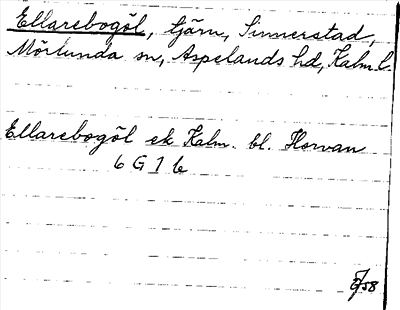 Ellarebogöl, tjärn, Sinnerstad,
Mörlunda sn, Aspelands hd, Kalm. l.
Ellarebogöl ek Kalm. bl. Horvan
6 G 1 b